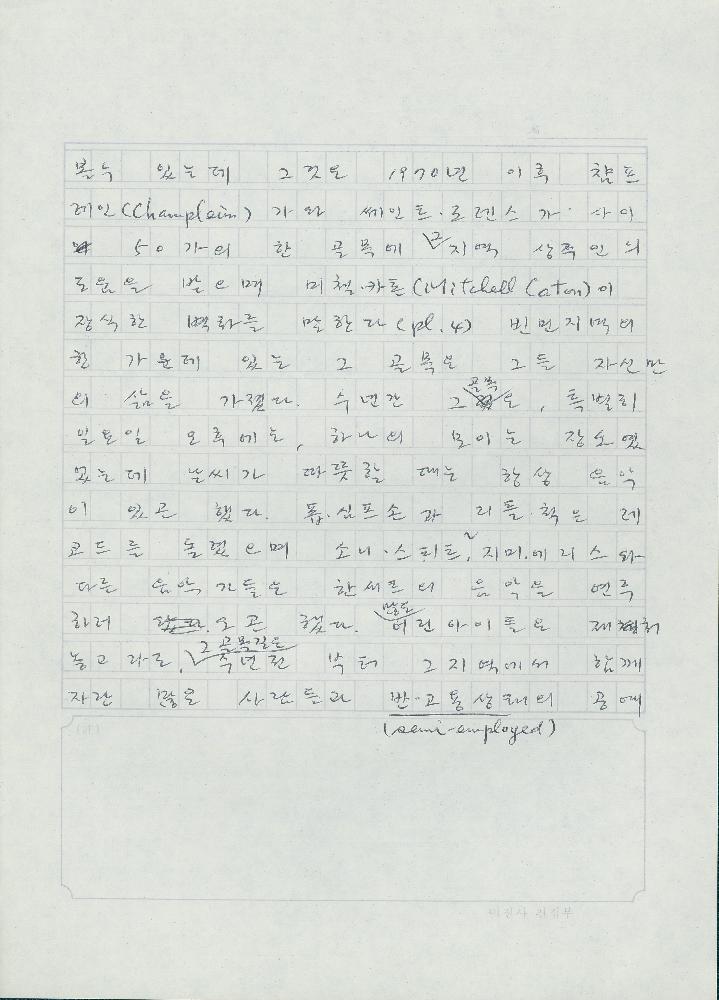 볼 수 있는데 그것은 1970년 이후 챔프
레인(Champlain) 가와 쎄인트·로렌스가 사이
50가의 한 골목에 그 지역 상점인의
도움을 받으며 미첼·카톤(Mitchell Caton)이
장식한 벽화를 말한다(pl.4) 빈민지역의
한 가운데 있는 그 골목은 그들 자신만
의 삶을 가졌다. 수년간 그 골목은, 특별히
일요일 오후에는, 하나의 모이는 장소였
었는데 날씨가 따뜻할 때는 항상 음악
이 있곤 했다. 톱·심프손과 리틀·척은 레
코드를 돌렸으며 소니·스티트, 지미·에리스와
다른 음악가들은 한쎄트의 음악을 연주
하러 오곤 했다. 많은 어린아이들은 재
놓고라도, 그 골목길은 수년전 부터 그 지역에서 함께
자란 많은 사람들과 반·고용상태의
(semi-employed)
미진사 편집부